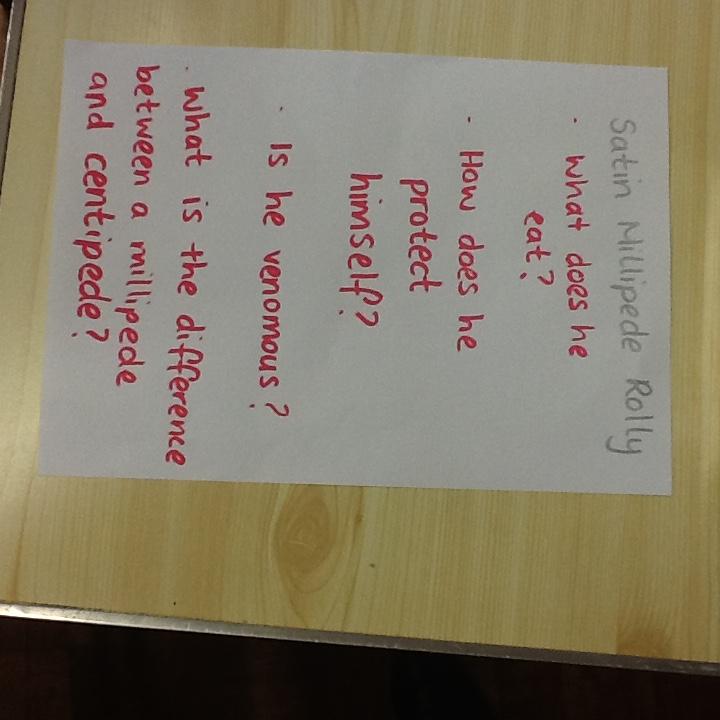 Satin Millipede Rolly
· What does he
eat?
· How does he
protect
himself?
· Is he venomous?
· What is the difference
between a millipede
and centipede?